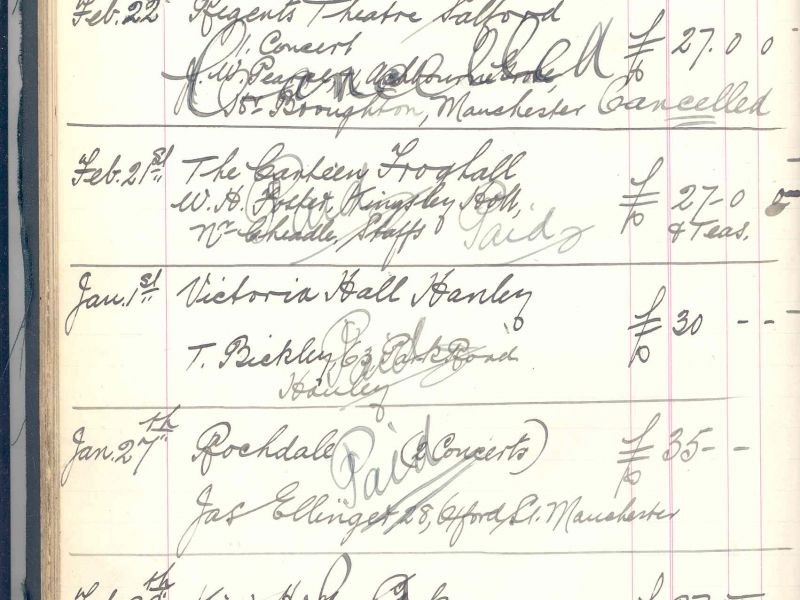 Feb. 22 Regents Theatre Salford
Concert £ 27. 0 0
Cancelled
J. W. Pearce, Ashbourne Grove,
Broughton, Manchester Cancelled
Feb. 21st The Canteen Froghall
W. H. Foster, Kingsley Holt, £ 27-0 0
Nr Cheadle, Staffs Paid & Teas.
Paid
Jan. 1st Victoria Hall Hanley
£ 30 - -
T. Bickley, 63 Park Road
Paid
Hanley
Jan. 27th Rochdale (2 Concerts) £ 35 - -
Paid
Jas Ellinger 28, Oxford St. Manchester
th